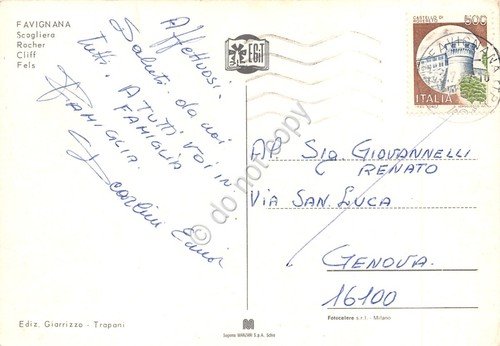 FAVIGNANA
Scogliera
Rocher
Cliff
Fels
Affettuosi
Saluti da noi
tutti. A TUTTI VOI IN
FAMIGLIA
FAMIGLIA.
EGIT
500
ITALIA
AP. SIG. GIOVANNELLI
RENATO
VIA SAN LUCA
GENOVA
16100
© do not copy
Ediz. Giarrizzo - Trapani
Fotocelere s.r.l. - Milano